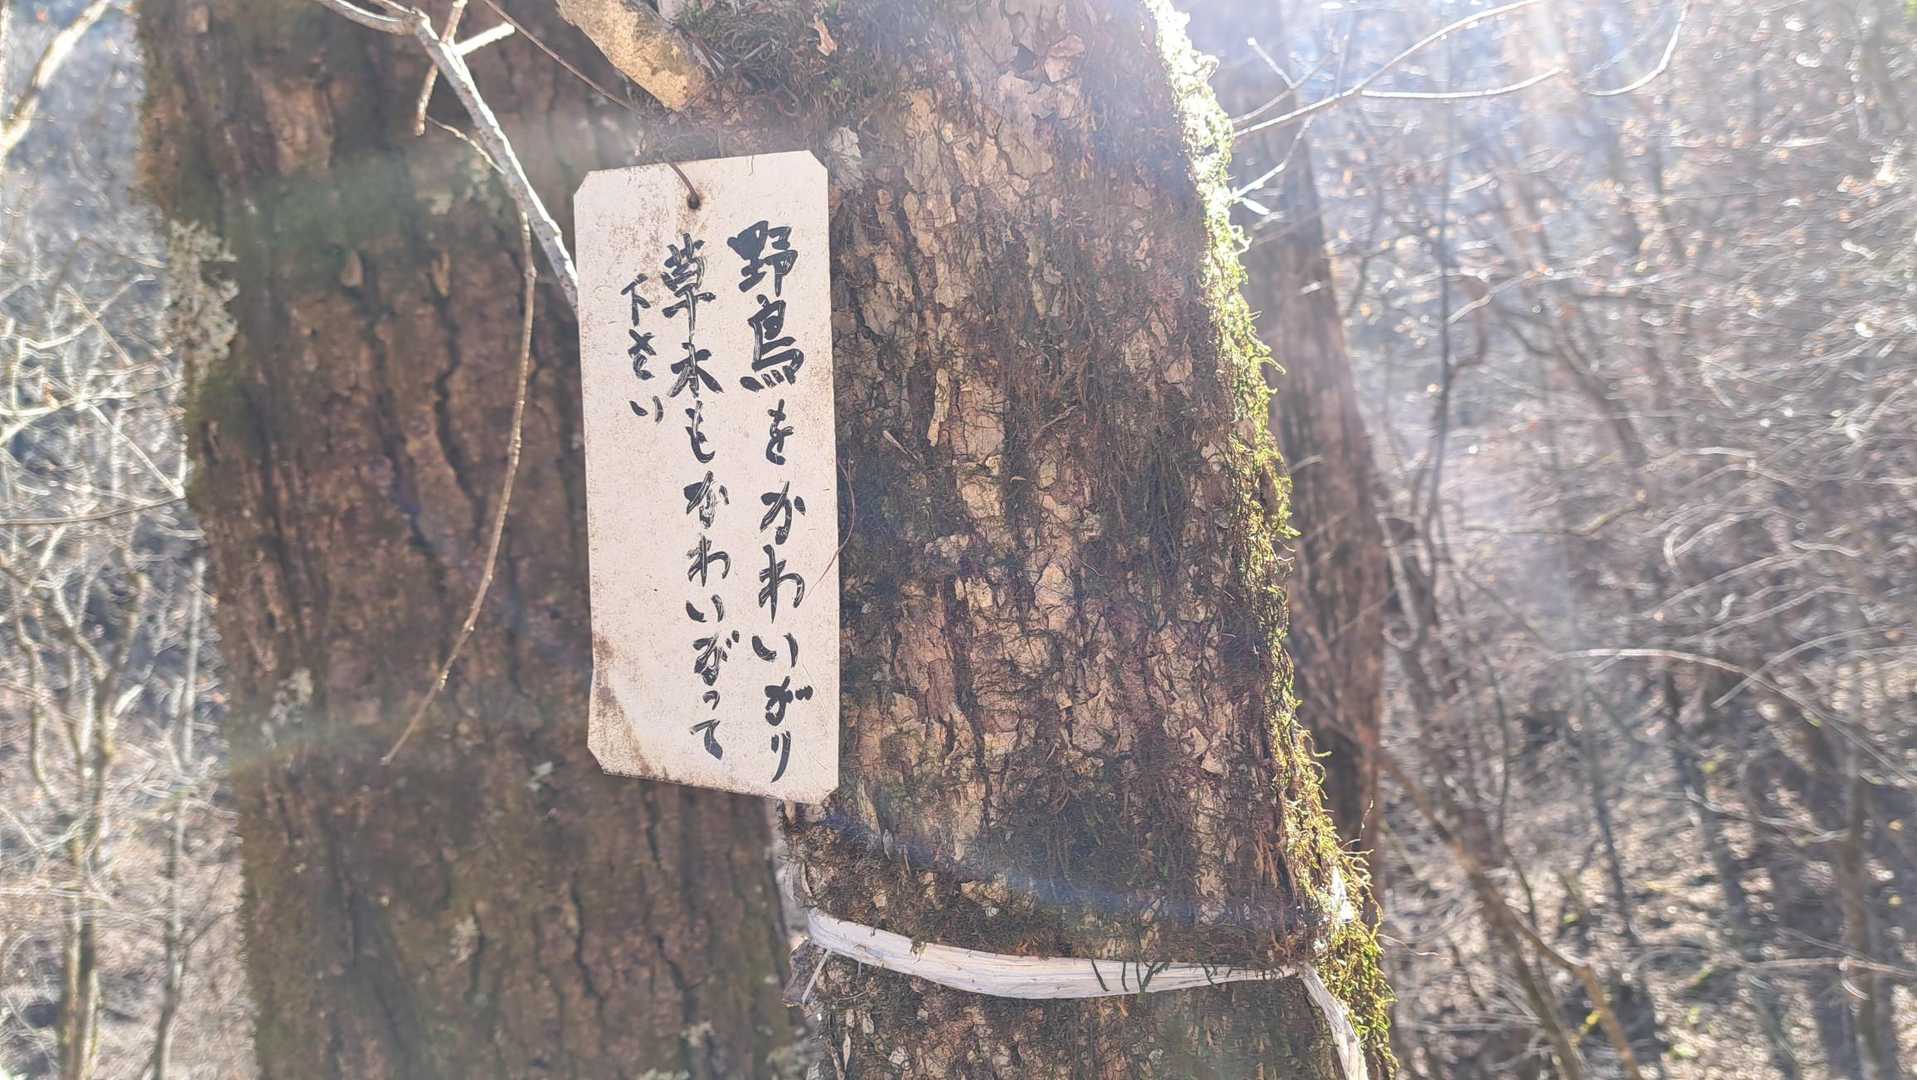 野鳥をかわいがり
草木もかわいがって
下さい